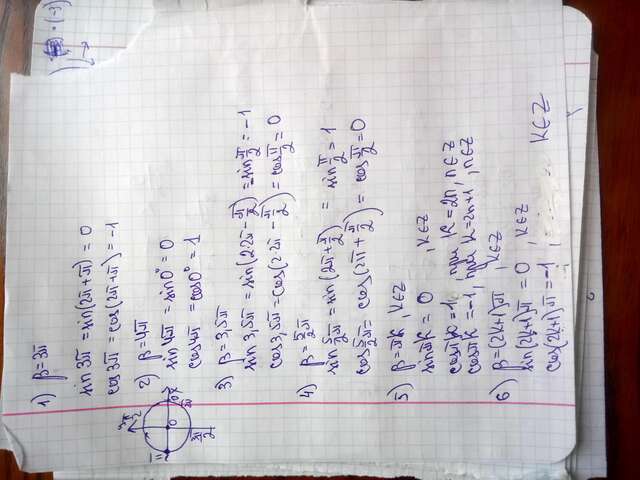 1) β=3π
sin 3π = sin(2π+π) = 0
cos 3π = cos(2π+π) = -1
2) β=4π
sin 4π = sin 0° = 0
cos 4π = cos 0° = 1
3) β=3,5π
sin 3,5π = sin(2·2π - π/2) = -sin π/2 = -1
cos 3,5π = cos(2·2π - π/2) = cos π/2 = 0
4) β = 5/2 π
sin 5/2 π = sin(2π + π/2) = sin π/2 = 1
cos 5/2 π = cos(2π + π/2) = cos π/2 = 0
5) β=πk, k∈Z
sin πk = 0, k∈Z
cos πk = 1, при k=2n, n∈Z
cos πk = -1, при k=2n+1, n∈Z
6) β=(2k+1)π, k∈Z
sin(2k+1)π = 0, k∈Z
cos(2k+1)π = -1, k∈Z